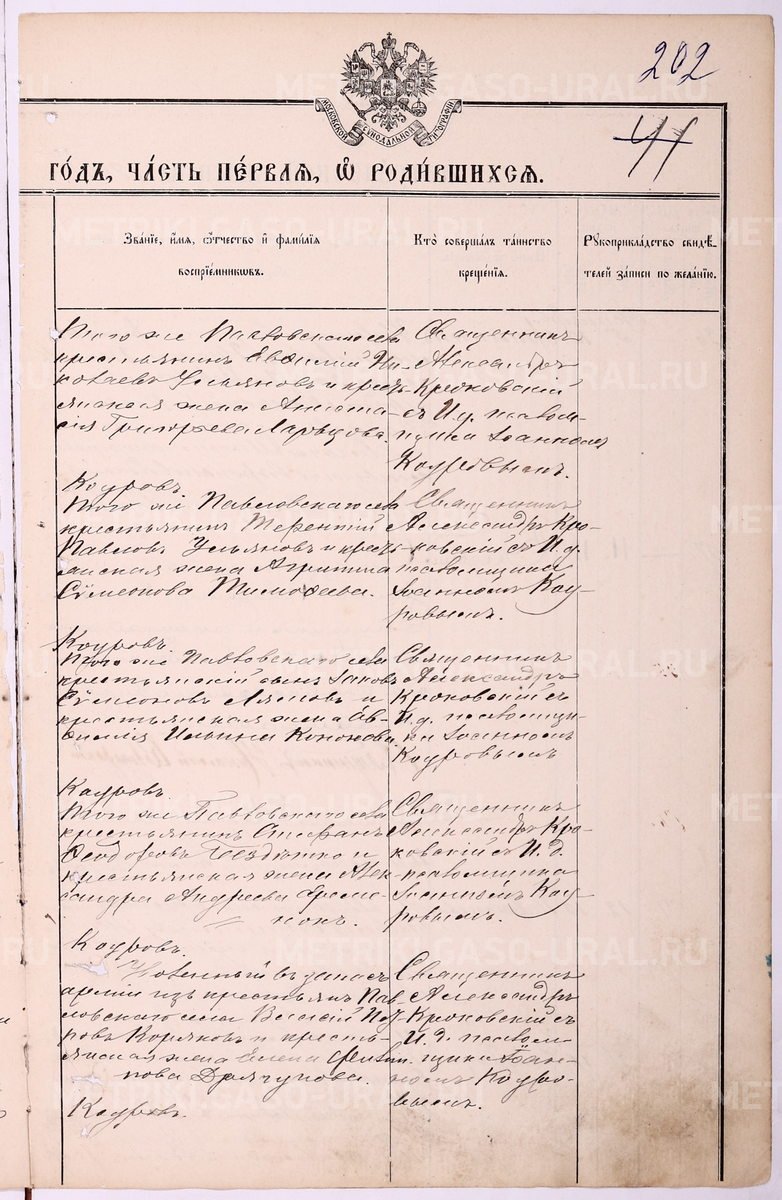 202
41
МОСКОВСКОЙ СѴНОДАЛЬНОЙ ТИПОГРАФІИ
ГОДЪ, ЧАСТЬ ПЕРВАЯ, Ѡ РОДИВШИХСЯ.
Званіе, имя, отчество и фамилія
воспріемниковъ.
Кто совершалъ таинство
крещенія.
Рукоприкладство свидѣ-
телей записи по желанію.
Того же Павловскаго села
крестьянинъ Евфимій Ни-
колаевъ Ульяновъ и кресть-
янская жена Анаста-
сія Григорьева
Священникъ
Александръ
Крюковскій
съ И.д. псалом-
щика Іоанномъ
Кауровымъ.
Кауровъ.
Того же Павловскаго села
крестьянинъ Терентій
Павловъ Ульяновъ и кресть-
янская жена Агрипина
Сѵмеонова Тимофеева.
Священникъ
Александръ Крю-
ковскій съ И.д.
псаломщика
Іоанномъ Кау-
ровымъ.
Кауровъ.
Того же Павловскаго села
крестьянскій сынъ Іаковъ
Сѵмеоновъ и
крестьянская жена Ев-
фимія Ильина Кононова
Священникъ
Александръ
Крюковскій съ
И.д. псаломщи-
ка Іоанномъ
Кауровымъ
Кауровъ.
Того же Павловскаго села
крестьянинъ
Ѳеодоровъ и
крестьянская жена Алек-
сандра Андреева
Священникъ
Александръ Крю-
ковскій съ И.д.
псаломщика
Іоанномъ Кау-
ровымъ.
Кауровъ.
въ запасъ
арміи изъ крестьянъ Пав-
ловскаго села Василій
и кресть-
янская жена Елена
Священникъ
Александръ
Крюковскій съ
И.д. псалом-
щика Іоан-
номъ Кауро-
вымъ.
Кауровъ.
METRIKI.GASO-URAL.RU